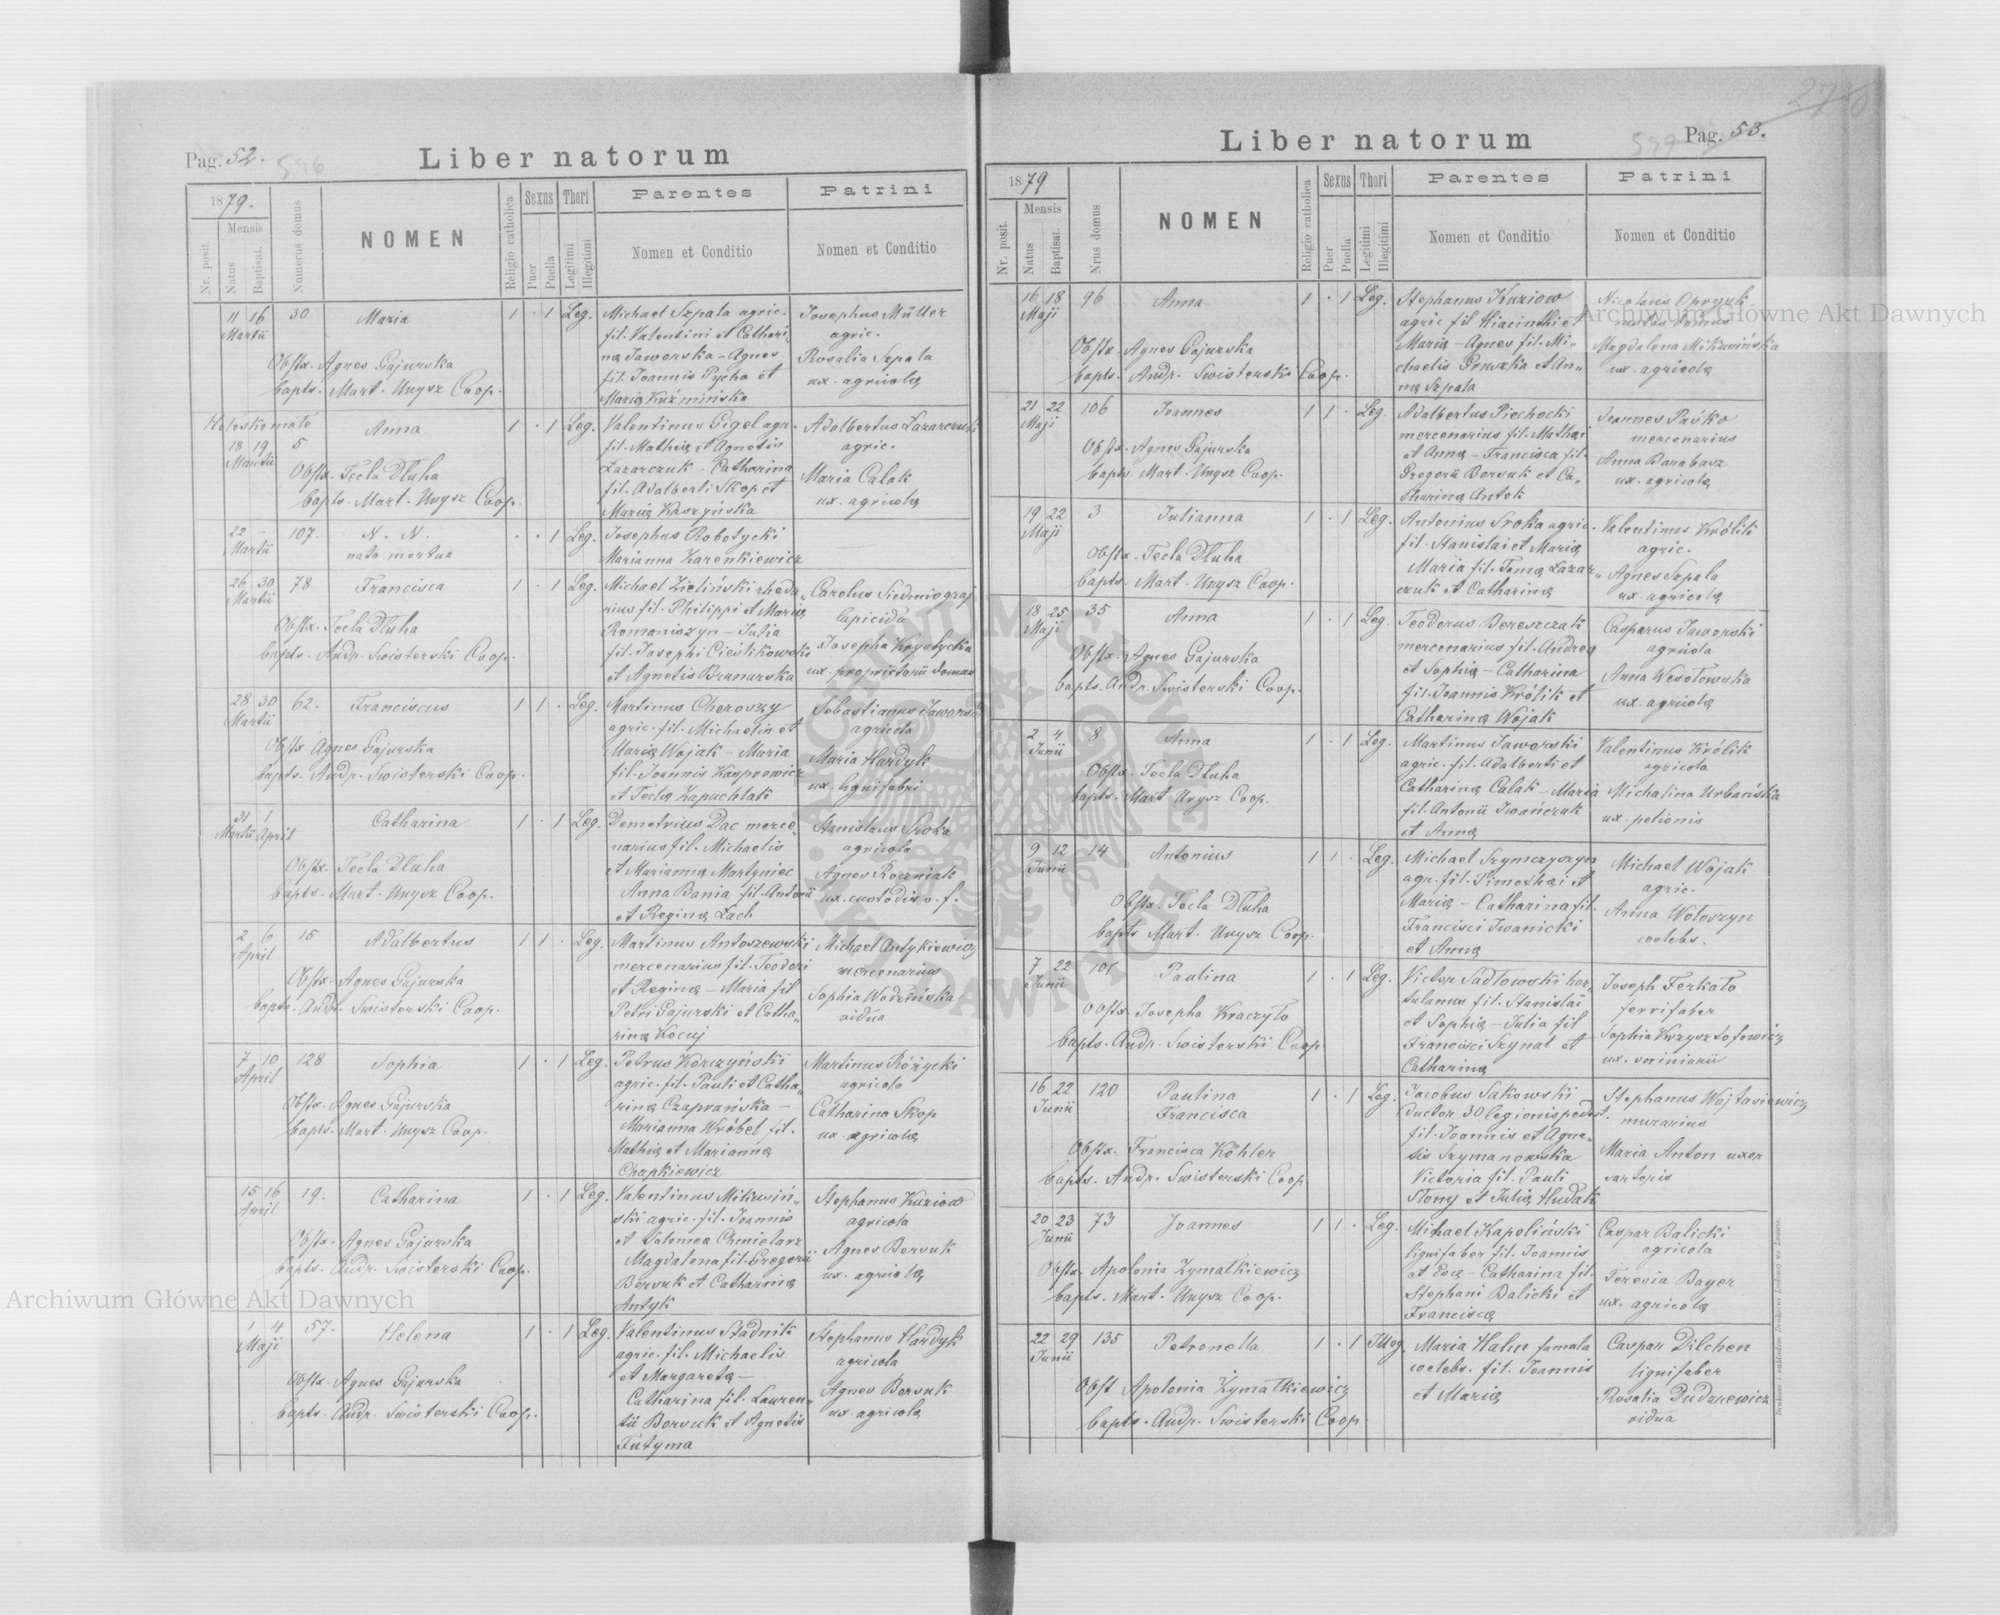 Pag. 52.
596
Liber natorum
1879.
Nr. posit.
Mensis
Natus
Baptisat.
Numerus domus
NOMEN
Religio catholica
Sexus
Puer
Puella
Thori
Legitimi
Illegitimi
Parentes
Nomen et Conditio
Patrini
Nomen et Conditio
11 16 30 Maria 1 · 1 Leg.
Martii
Obstx. Agnes Gajurska
bapts. Mart. Unysz Coop.
Michael Szpala agric.
fil. Valentini et Cathari-
na Jaworska – Agnes
fil. Joannis Pycha et
Maria Kuźmińska
Josephus Müller
agric.
Rosalia Szpala
ux. agricolae
Anna 1 · 1 Leg.
18 19 5
Martii
Obstx. Tecla Dluha
bapts. Mart. Unysz Coop.
Valentinus Gigel agr.
fil. Mathiae et Agnetis
Lazarczuk – Catharina
fil. Adalberti Skop et
Maria Kaszyńska
Adalbertus Lazarczuk
agric.
Maria Calak
ux. agricolae
22 – 107. N. N. · · 1 Leg.
Martii nata mortua
Josephus Robotycki
Marianna Harenkiewicz
26 30 78 Francisca 1 · 1 Leg.
Martii
Obstx. Tecla Dluha
bapts. Andr. Swisterski Coop.
Michael Zieliński rheda-
rius fil. Philippi et Maria
Romaniszyn – Julia
fil. Josephi Cieślikowski
et Agnetis Branarska
Carolus Siedmiograj
lapicida
Josepha Krynycka
ux. proprietarii domus
28 30 62. Franciscus 1 1 · Leg.
Martii
Obstx Agnes Gajurska
bapts. Andr. Swisterski Coop.
Martinus Cheroszy
agric. fil. Michaelis et
Maria Wojak – Maria
fil. Joannis Kasprowicz
et Tecla Kapuchlak
Sebastianus Jaworski
agricola
Maria Hardyk
ux. lignifabri
31 1 Catharina 1 · 1 Leg.
Martii April
Obstx. Tecla Dluha
bapts. Mart. Unysz Coop.
Demetrius Dac merce-
narius fil. Michaelis
et Marianna Martyniec
Anna Bania fil. Antonii
et Regina Lach
Stanislaus Sroka
agricola
Agnes Rozniak
ux. custodis v. f.
2 6 15 Adalbertus 1 1 · Leg.
April
Obstx. Agnes Gajurska
bapts. Andr. Swisterski Coop.
Martinus Antoszewski
mercenarius fil. Teodori
et Regina – Maria fil
Petri Gajurski et Catha-
rina Kocuj
Michael Antykiewicz
mercenarius
Sophia Wodzińska
vidua
7 10 128 Sophia 1 · 1 Leg.
April
Obstx. Agnes Gajurska
bapts. Mart. Unysz Coop.
Petrus Korczyński
agric. fil. Pauli et Catha-
rina Czaprańska –
Marianna Wróbel fil.
Mathia et Marianna
Chapkiewicz
Martinus Różycki
agricola
Catharina Skop
ux. agricolae
15 16 19. Catharina 1 · 1 Leg.
April
Obstx. Agnes Gajurska
bapts. Andr. Swisterski Coop.
Valentinus Mikuszń-
ski agric. fil. Joannis
et Salomea Chmielarz
Magdalena fil. Gregorii
Borsuk et Catharina
Antyk
Stephanus Kuziow
agricola
Agnes Borsuk
ux. agricolae
1 4 57. Helena 1 · 1 Leg.
Maji
Obstx. Agnes Gajurska
bapts. Andr. Swisterski Coop.
Valentinus Stadnik
agric. fil. Michaelis
et Margareta –
Catharina fil. Lauren-
tii Borsuk et Agnetis
Tutyma
Stephanus Hardyk
agricola
Agnes Borsuk
ux. agricolae
Pag. 53.
Liber natorum
1879
Nr. posit.
Mensis
Natus
Baptisat.
Nrus domus
NOMEN
Religio catholica
Sexus
Puer
Puella
Thori
Legitimi
Illegitimi
Parentes
Nomen et Conditio
Patrini
Nomen et Conditio
16 18 96 Anna 1 · 1 Leg.
Maji
Obstx. Agnes Gajurska
bapts. Andr. Swisterski Coop.
Stephanus Kuziow
agric fil Hiacinthi et
Maria – Agnes fil. Mi-
chaelis Gruszka et An-
na Szpala
Nicolaus Opryszk
custos domus
Magdalena Mikusińska
ux. agricolae
21 22 106 Joannes 1 1 · Leg.
Maji
Obstx. Agnes Gajurska
bapts Mart. Unysz Coop.
Adalbertus Piechocki
mercenarius fil. Mathaei
et Anna – Francisca fil.
Gregorii Borsuk et Ca-
tharina Antek
Joannes Paśko
mercenarius
Anna Barabasz
ux. agricolae
19 22 3 Julianna 1 · 1 Leg.
Maji
Obstx. Tecla Dluha
bapts. Mart. Unysz Coop.
Antonius Sroka agric.
fil. Stanislai et Maria
Maria fil. Toma Lazar-
czuk et Catharina
Valentinus Królik
agric.
Agnes Szpala
ux. agricolae
18 25 35 Anna 1 · 1 Leg.
Maji
Obstx. Agnes Gajurska
bapts. Andr Swisterski Coop.
Teodorus Bereszczak
mercenarius fil. Andrea
et Sophia – Catharina
fil. Joannis Królik et
Catharina Wojak
Casparus Jaworski
agricola
Anna Wesołowska
ux. agricolae
2 4 8 Anna 1 · 1 Leg.
Junii
Obstx. Tecla Dluha
bapts. Mart Unysz Coop.
Martinus Jaworski
agric. fil. Adalberti et
Catharina Calak – Maria
fil. Antonii Iwańczuk
et Anna
Valentinus Królik
agricola
Michalina Urbańska
ux. pelionis
9 12 14 Antonius 1 1 · Leg.
Junii
Obstx. Tecla Dluha
bapts Mart. Unysz Coop.
Michael Szymczyszyn
agr. fil. Timothei et
Maria – Catharina fil.
Francisci Iwanicki
et Anna
Michael Wojak
agric.
Anna Wołoszyn
coelebs.
7 22 101 Paulina 1 · 1 Leg.
Junii
Obstx. Josepha Kraczyło
bapts. Andr. Swisterski Coop
Victor Sadłowski hor-
tulanus fil. Stanislai
et Sophia – Julia fil
Francisci Szynal et
Catharina
Joseph Ferkało
ferrifaber
Sophia Krzysztofowicz
ux. scriniarii
16 22 120 Paulina 1 · 1 Leg.
Junii Francisca
Obstx. Francisca Köhler
bapts. Andr. Swisterski Coop
Jacobus Sakowski
Ductor 30 legionis pedest.
fil. Joannis et Agne-
tis Szymanowska
Victoria fil. Pauli
Słony et Julia Hudak
Stephanus Wojtasiewicz
murarius
Maria Anton uxor
sartoris
20 23 73 Joannes 1 1 · Leg.
Junii
Obstx. Apolonia Zymalkiewicz
bapts. Mart. Unysz Coop.
Michael Kapoliński
lignifaber fil. Joannis
et Eva – Catharina fil.
Stephani Balicki et
Francisca
Caspar Balicki
agricola
Teresia Bayer
ux. agricolae
22 29 135 Petronella 1 · 1 Illeg.
Junii
Obst Apolonia Zymalkiewicz
bapts. Andr. Swisterski Coop.
Maria Hahn famula
coelebs. fil. Joannis
et Maria
Caspar Dilchen
lignifaber
Rosalia Dudarewicz
vidua
Archiwum Główne Akt Dawnych
Archiwum Główne Akt Dawnych
ARCHIWUM GŁÓWNE AKT DAWNYCH